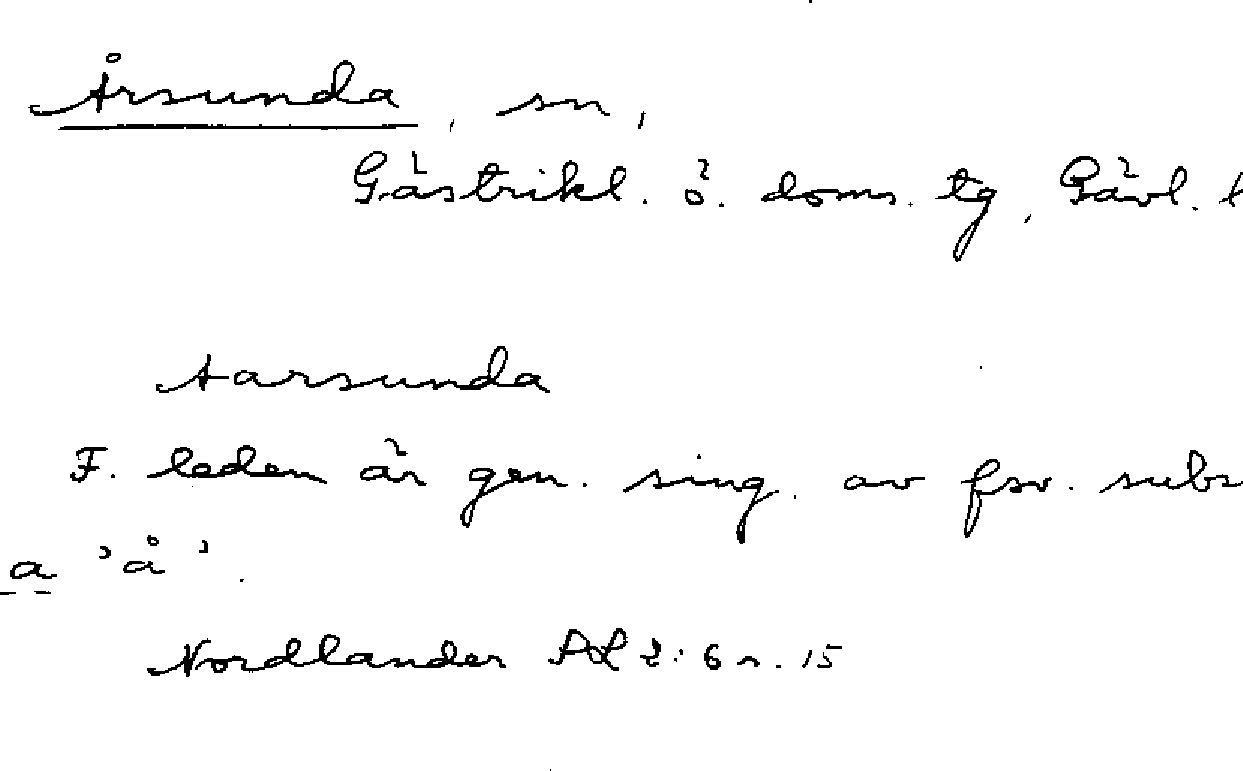 Årsunda, sn,
Gästrikl. ö. doms. tg, Gävl. l
Aarsunda
F. leden är gen. sing. av fsv. subs
a 'å'.
Nordlander AL 2:6 s. 15